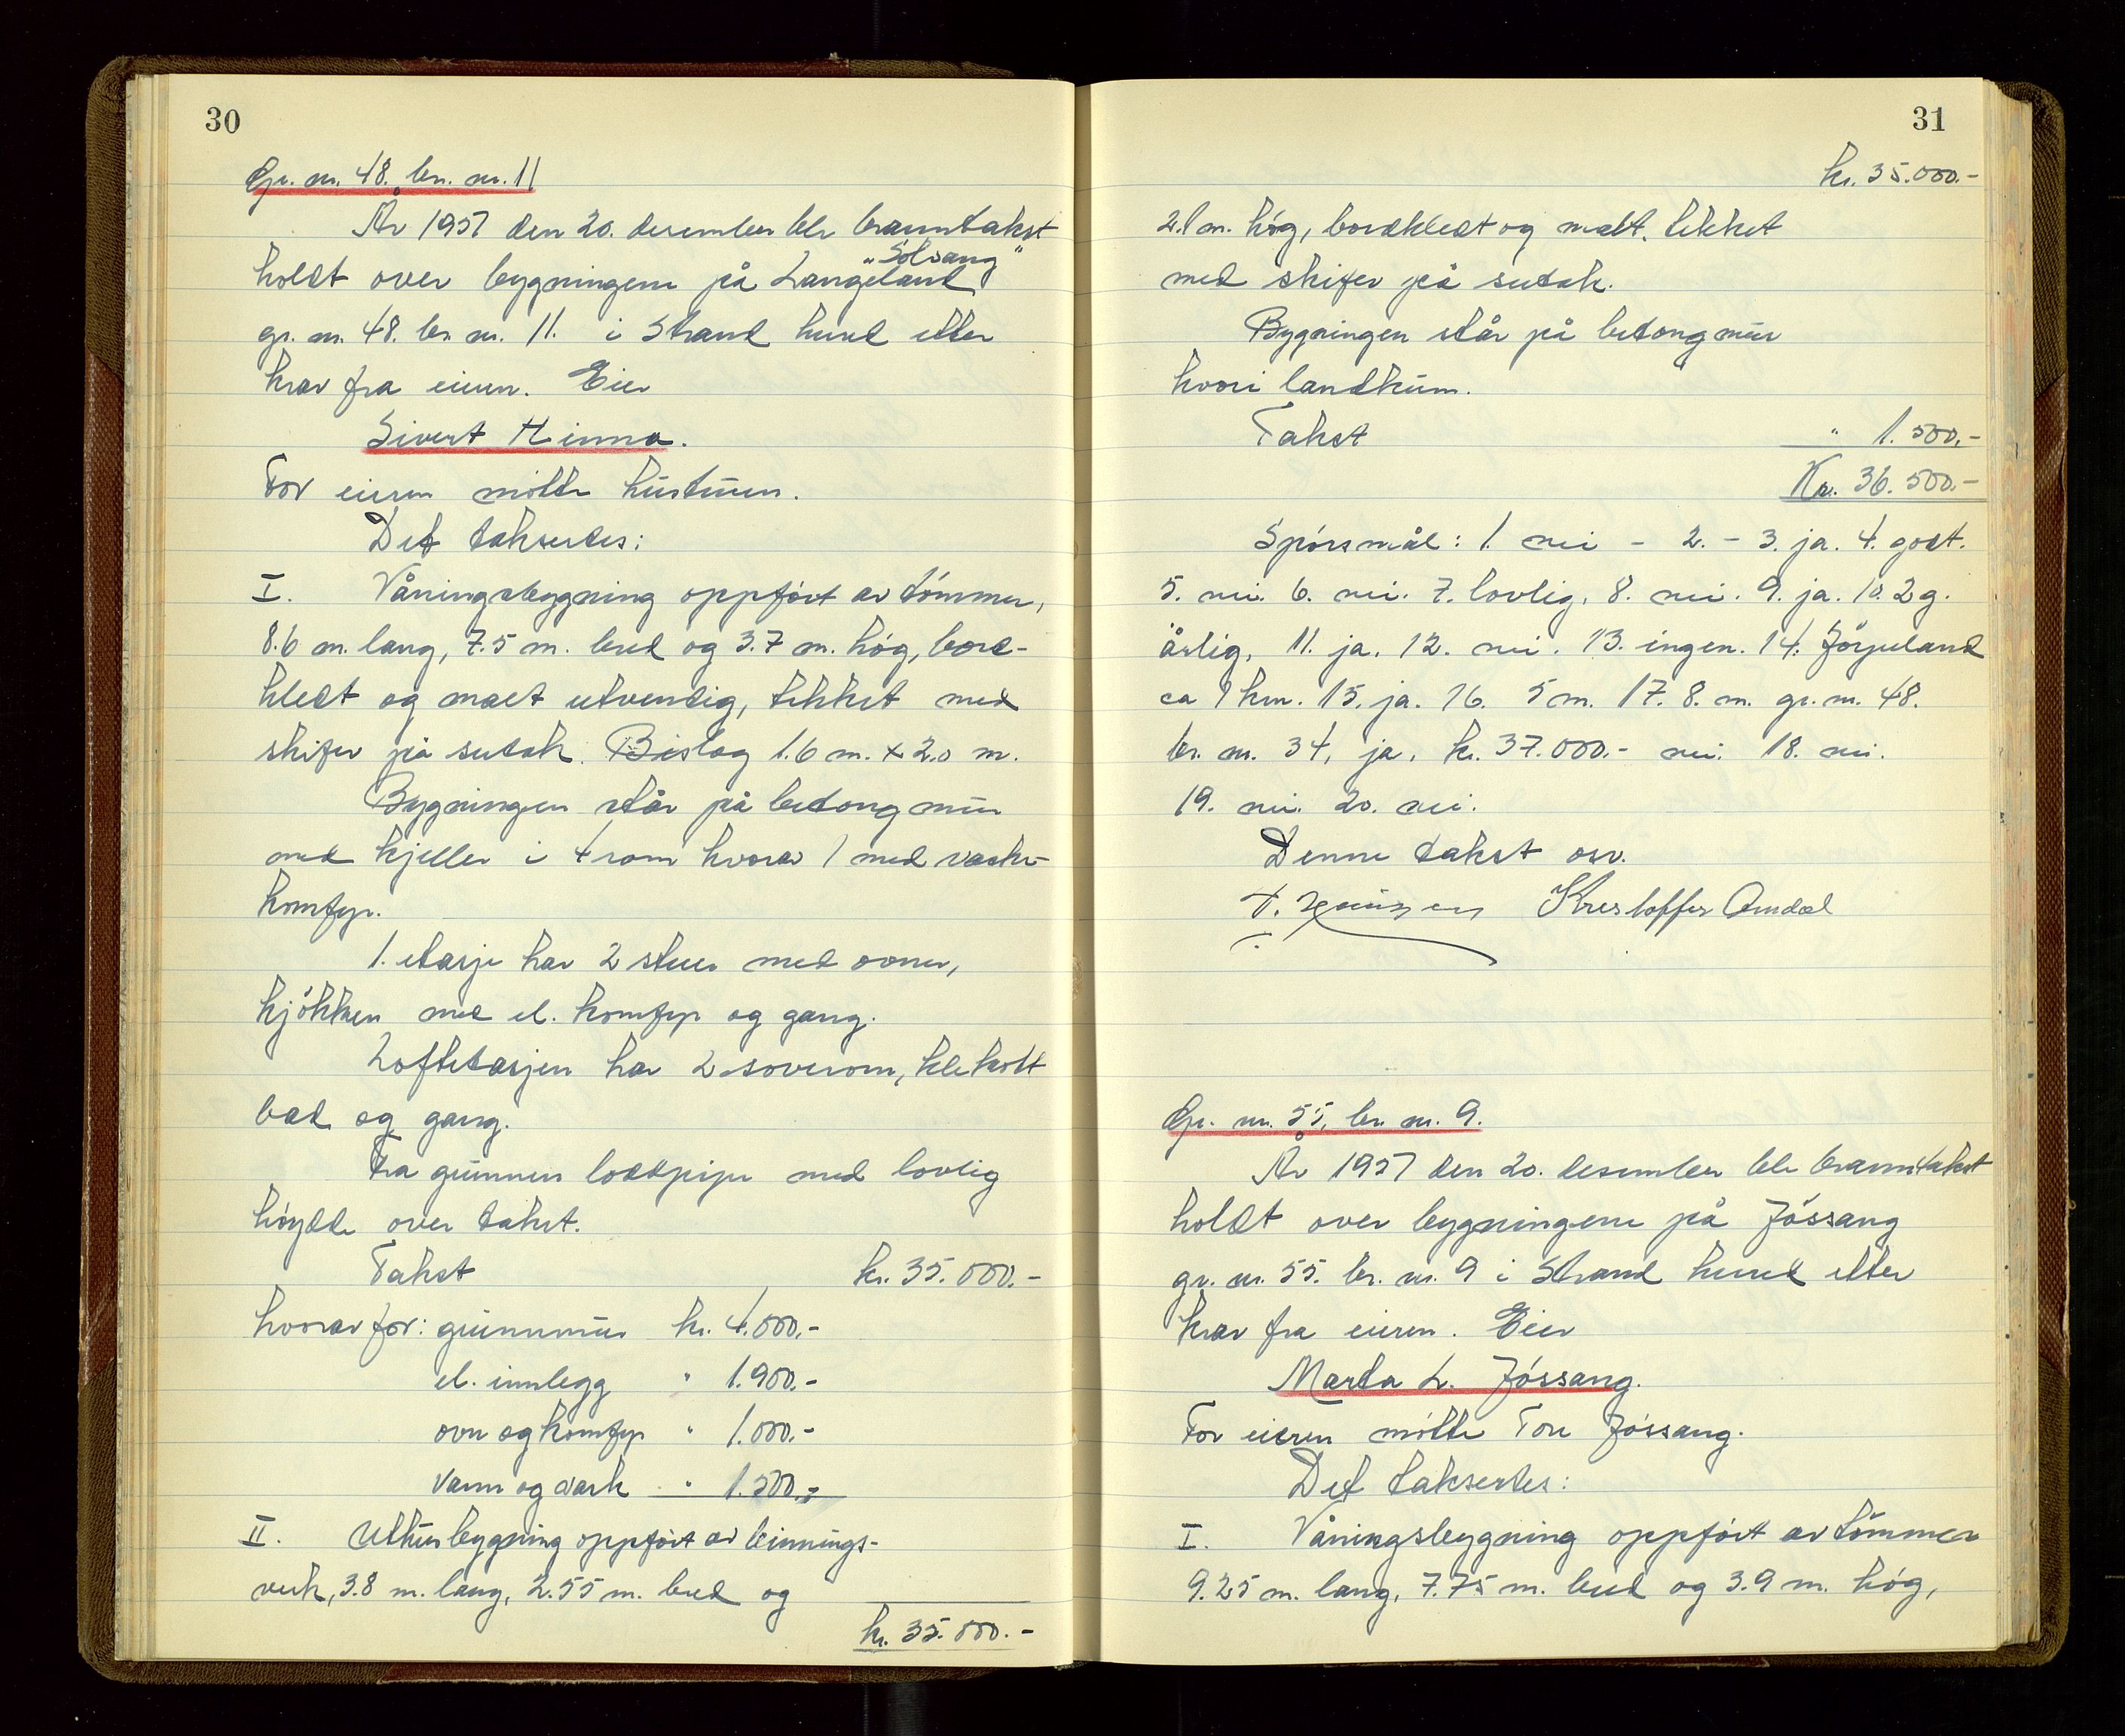 30
Gr. nr. 48. br. nr. 11
År 1957 den 20. desember ble branntakst
"Solvang"
holdt over bygningene på Langeland
gr. nr. 48. br. nr. 11. i Strand herred etter
krav fra eieren. Eier
Sivert Hinna.
For eieren møtte hustruen.
Det taksertes:
I. Våningsbygning oppført av tömmer,
8.6 m. lang, 7.5 m. bred og 3.7 m. høg, bord-
kledt og malt utvendig, tekket med
skifer på sutak. Bislag 1.6 m. x 2.0 m.
Bygningen står på betongmur
med kjeller i 4 rom hvorav 1 med vaske-
komfyr.
1. etasje har 2 stuer med ovner,
kjökken med el. komfyr og gang.
Loftetasjen har 2 soverom, klekott
bad og gang.
Fra grunnen loddpipe med lovlig
høydde over taket.
Takst kr. 35.000.-
hvorav for: grunnmur kr. 4.000,-
el. innlegg " 1.900.-
ovn og komfyr " 1.000.-
vann og vask " 1.500.-
II. Uthusbygning oppført av binnings-
verk, 3.8 m. lang, 2.55 m. bred og
kr. 35.000.-
31
kr. 35.000.-
2.1 m. høg, bordkledt og malt, tekket
med skifer på sutak.
Bygningen står på betongmur
hvori landkum.
Takst " 1.500,-
Kr. 36.500.-
Spörsmål: 1. nei - 2. - 3. ja. 4. godt.
5. nei. 6. nei. 7. lovlig, 8. nei. 9. ja. 10. 2 g.
årlig, 11. ja. 12. nei. 13. ingen. 14. Jörpeland
ca 1 km. 15. ja. 16. 5 m. 17. 8. m. gr. nr. 48.
br. nr. 34, ja, kr. 37.000.- nei. 18. nei.
19. nei. 20. nei.
Denne takst osv.
Kristoffer Amdal
Gr. nr. 55, br. nr. 9.
År 1957 den 20. desember ble branntakst
holdt over bygningene på Jössang
gr. nr. 55. br. nr. 9 i Strand herred etter
krav fra eieren. Eier
Marta L. Jóssang.
For eieren møtte Tore Jóssang.
Det taksertes:
I. Våningsbygning oppført av tömmer
9.25 m. lang, 7.75 m. bred og 3.9 m. høg,